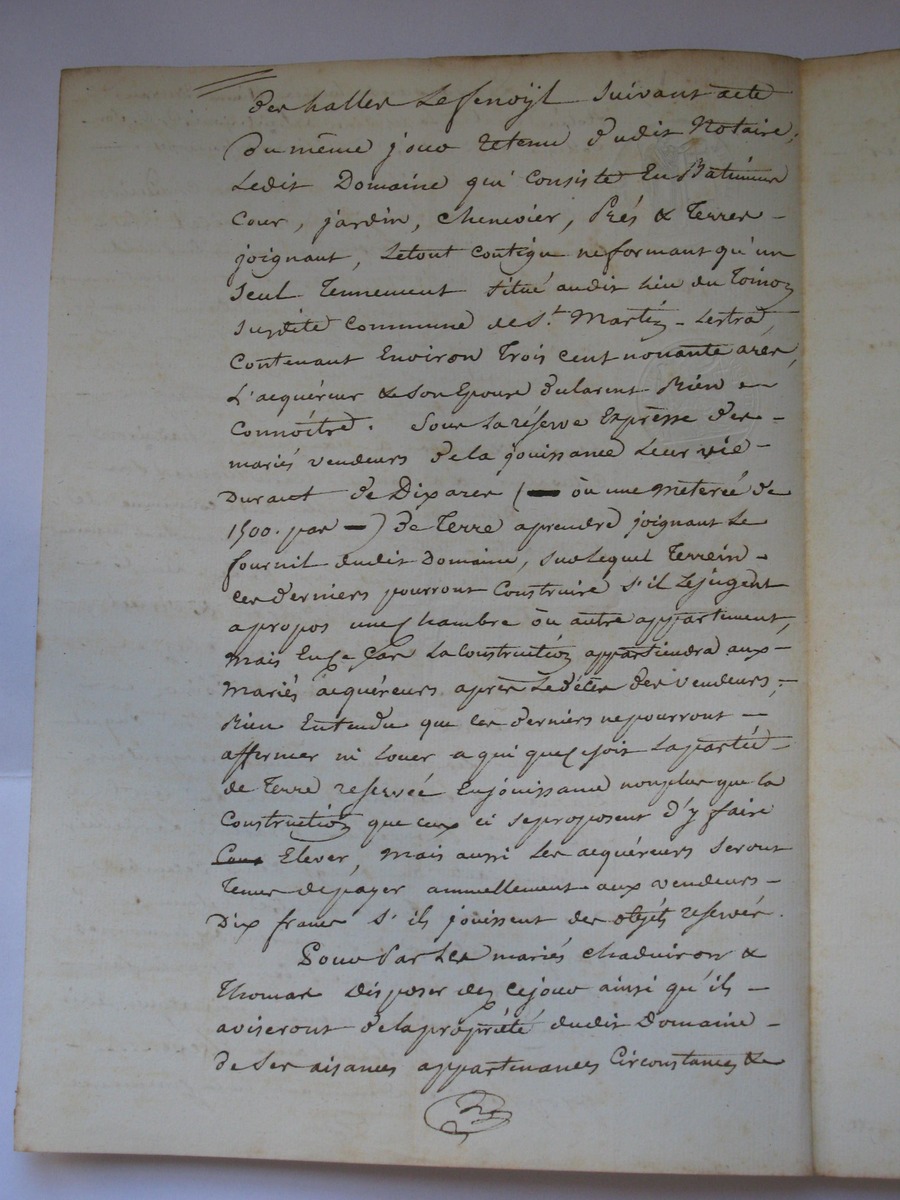 des halles Lessenoÿl suivant acte
du même jour retenu dudit Notaire,
Ledit Domaine qui Consiste En Batiments
Cour, jardin, chenevier, Prés & Terres -
joignant, Letout Contigu neformant qu'un
seul Tennement situé audit lieu du Toinon
susdite Commune de St. Martin - Lestrad,
Contenant Environ Trois cent nonante ares,
L'acquéreur & son Epouse declarent Bien -
Connoître. Sous La réserve Expresse des -
mariés vendeurs dela jouissance Leur vie -
Durant de Dix ares (— òu une Meterée de
1500. par —) de Terre aprendre joignant Le
fournil dudit Domaine, sur Lequel Terrein -
ces derniers pourront Construire s'il Lejugent
apropos une Chambre òu autre appartement,
Mais En Ce Cas La Construction appartiendra aux -
Mariés acquéreurs après Le décès des vendeurs;
Bien Entendu que ces derniers nepourront -
affirmer ni Louer a qui que ce soit La partie -
de Terre reservée Enjouissance nonplus que la
Construction que ceux ci seproposent d'y faire
Elever, Mais aussi Les acquéreurs seront
Tenus depayer annuellement aux vendeurs -
Dix francs s'ils jouissent des objéts reservés.
Pour Par Les mariés chadviron &
Thomas Disposer dez cejour ainsi qu'ils -
aviseront dela propriété dudit Domaine -
de ses aisances appartenances Circonstances &